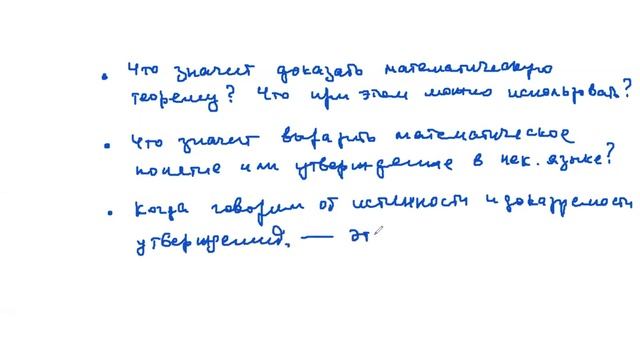 • Что значит доказать математическую
теорему? Что при этом можно использовать?
• Что значит выразить математическое
понятие или утверждение в нек. языке?
• Когда говорим об истинности и доказуемости
утверждений, — эт